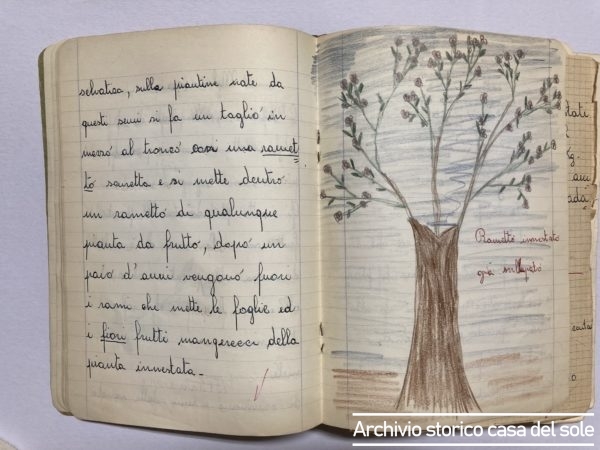 selvatica, sulla piantine nate da
questi semi si fa un taglio in
mezzo al tronco con una
saretta e si mette dentro
un rametto di qualunque
pianta da frutto, dopo un
paio d'anni vengono fuori
i rami che mette le foglie ed
i fiori frutti mangerecci della
pianta innestata.
Rametto innestato
già sviluppato
Archivio storico casa del sole